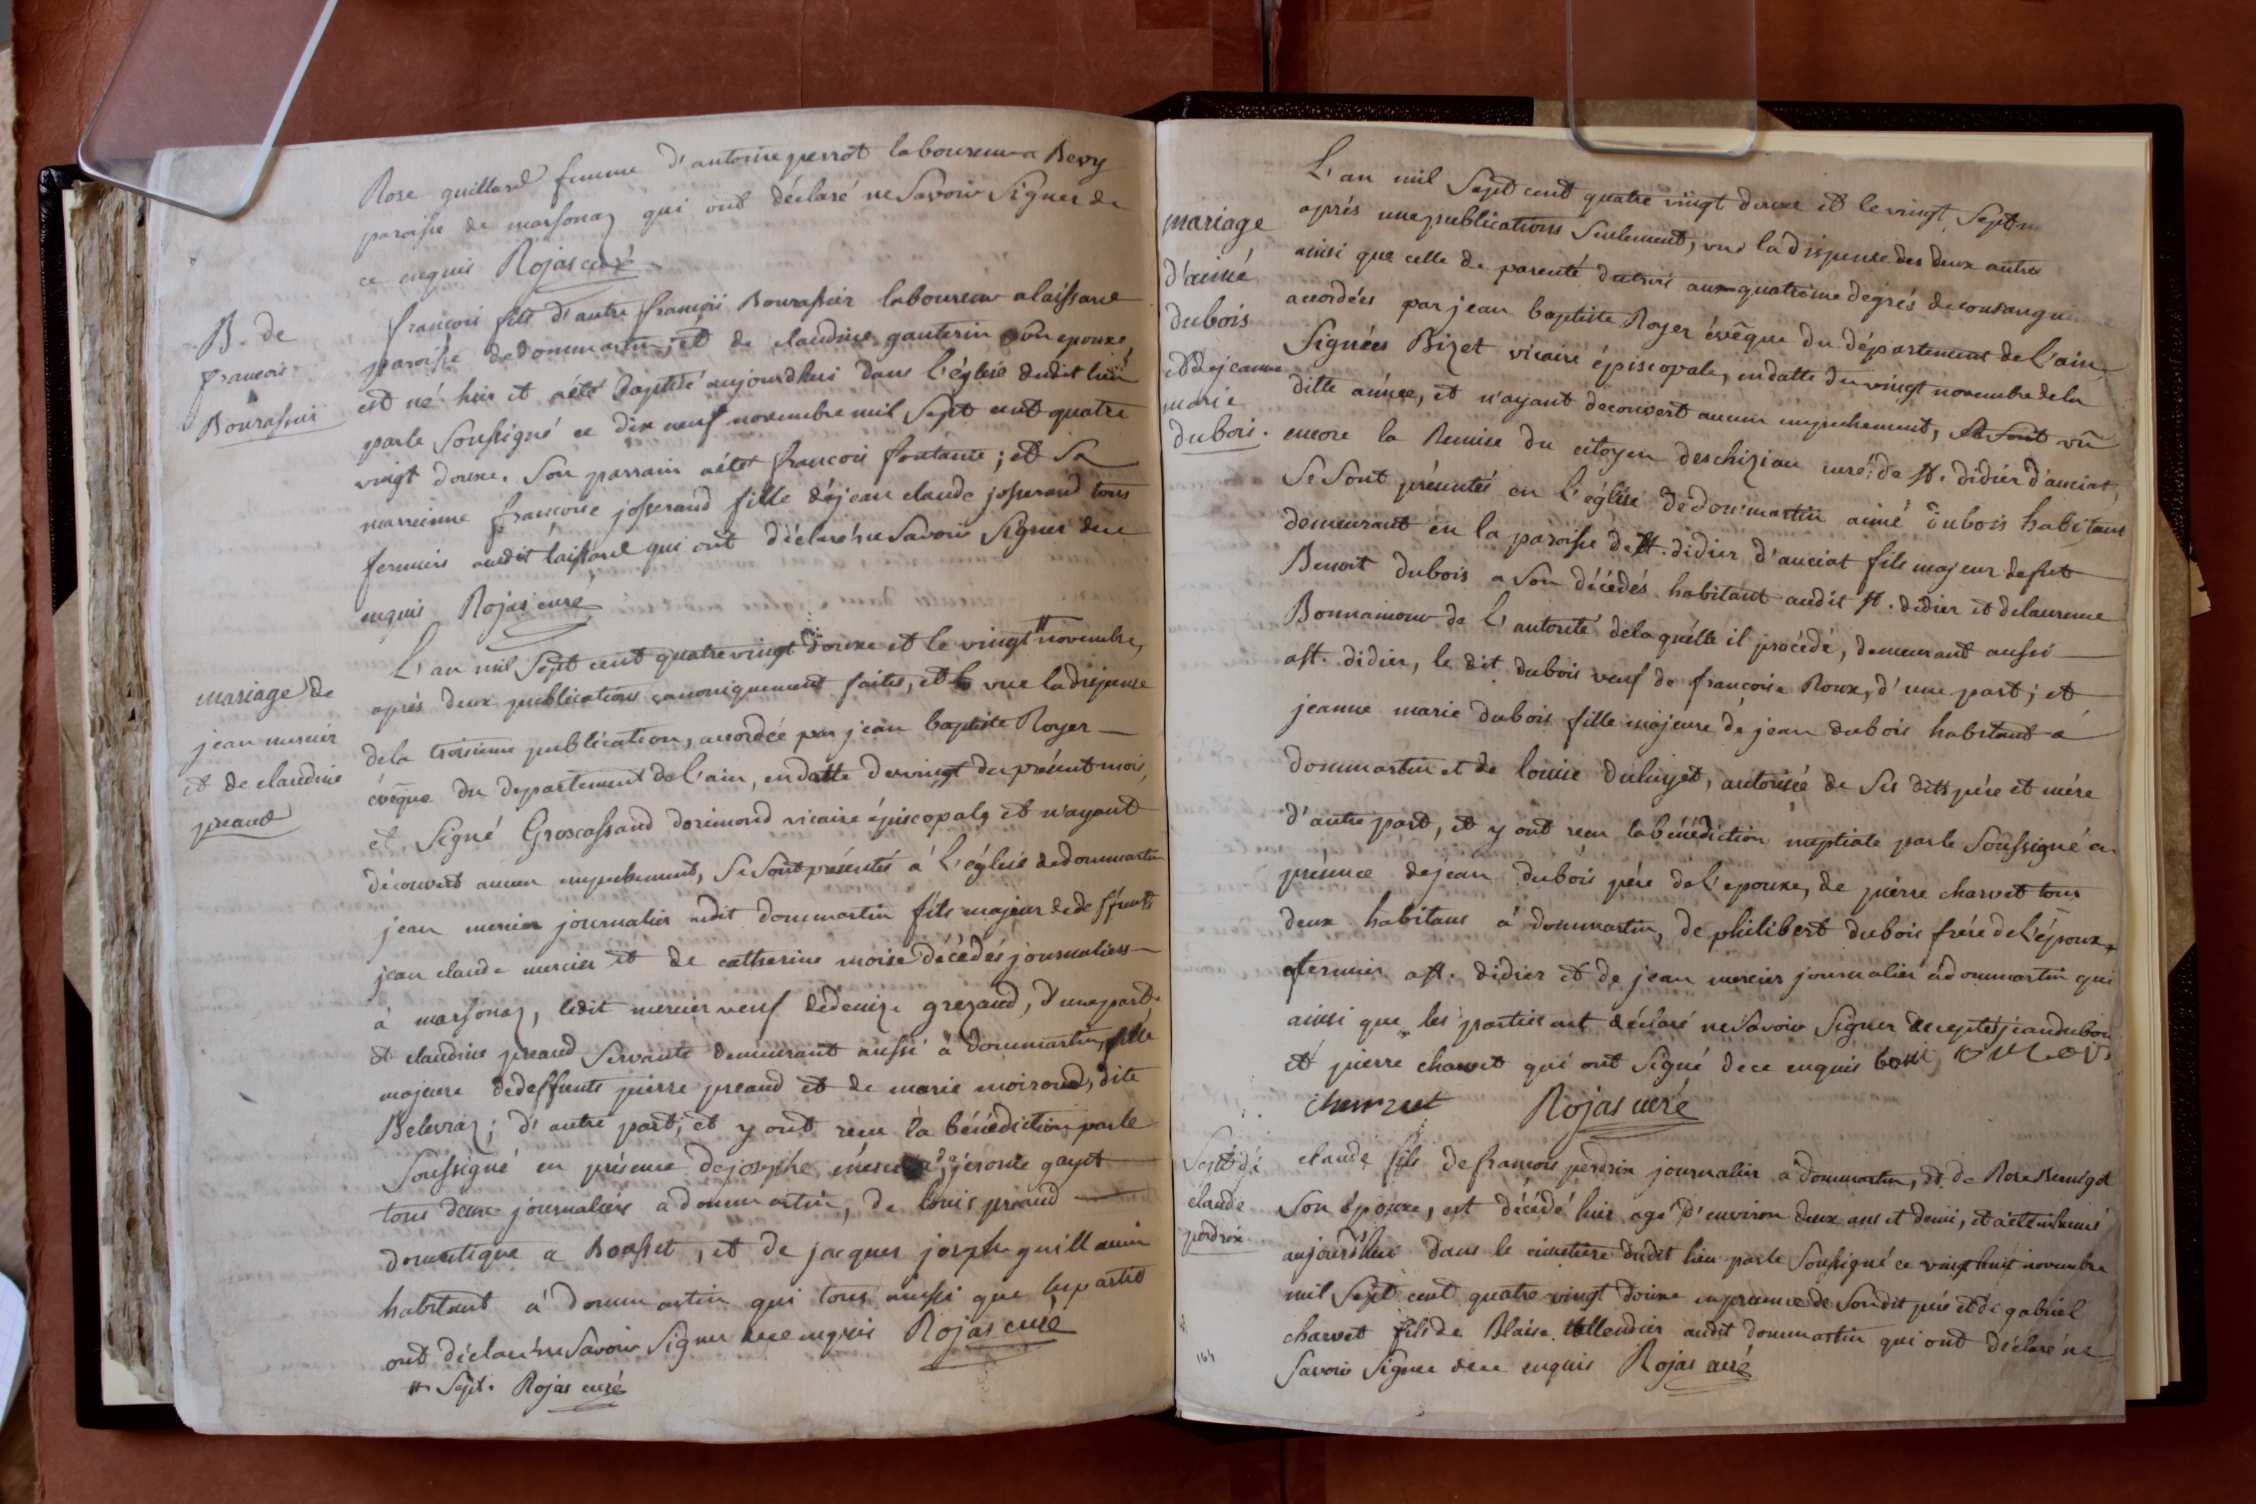 Rose guillard femme d'antoine perrot laboureur a Bevy
paroisse de marsonaz qui ont déclaré ne Savoir Signer de
ce enquis Rojas curé
B. de
francois
Bourassier
francois fils d'autre françois Bourassier laboureur a laissard
paroisse de dommartin, et de claudine gauterin son epouse,
est né hier et a été baptisé aujourdhui dans l'église dudit lieu
par le Soussigné ce dix neuf novembre mil Sept cent quatre
vingt douze. Son parrain a été francois fontaine; et Sa
marreinne francoise josserand fille de jean claude josserand tous
fermiers audit laissard qui ont déclaré ne Savoir Signer de ce
enquis Rojas curé
mariage de
jean mercier
et de claudine
preaud
L'an mil Sept cent quatre vingt douze et le vingt # novembre,
après deux publications canoniquement faites, et vue la dispense
de la troisieme publication, accordée par jean baptiste Royer
évêque du departement de l'ain, en datte du vingt du présent mois,
et Signé Groscassand dorimond vicaire épiscopal, et n'ayant
découvert aucun empechement, Se Sont présentés à l'église de dommartin
jean mercier journalier audit dommartin fils majeur de deffunts
jean claude mercier et de catherine moise décédés journaliers
à marsonaz, ledit mercier veuf de denize grezaud, d'une part,
et claudine preaud Servante demeurant aussi à dommartin, fille
majeure de deffunts pierre preaud et de marie moiroud, dite
Belevraz; d'autre part; et y ont recu la bénédiction par le
Soussigné en présence de josephe jerome gayet
tous deux journaliers a dommartin, de louis preaud
domestique a Boisset, et de jacques joseph guillemin
habitant à dommartin qui tous ainsi que les parties
ont déclaré ne Savoir Signer de ce enquis Rojas curé
# Sept. Rojas curé
mariage
d'aimé
dubois
et de jeanne
marie
dubois.
L'an mil Sept cent quatre vingt douze et le vingt Sept
après une publications Seulement, vu la dispense des deux autres
ainsi que celle de parenté du trois aux quatrième degrés de
accordées par jean baptiste Royer évêque du département de l'ain,
Signées Bizet vicaire épiscopale, en datte du vingt novembre de la
ditte année, et n'ayant decouvert aucun empechement, vû
encore la Remise du citoyen deschizian curé de St. didier d'auciat,
Se Sont présentés en l'église de dommartin aimé dubois habitant
demeurant en la paroisse de St. didier d'auciat fils majeur de fut
Benoit dubois a Son décédés habitant audit St. didier et de laurence
Bonnamour de l'autorité de laquelle il procédé, demeurant aussi
a St. didier, le dit dubois veuf de francoise Roux, d'une part; et
jeanne marie dubois fille majeure de jean dubois habitant à
dommartin et de louise duluyet, autorisée de Ses dits père et mère
d'autre part, et y ont recu la bénédiction nuptiale par le Soussigné en
présence de jean dubois père de l'epouse, de pierre charvet tous
deux habitans à dommartin, de philibert dubois frère de l'époux,
fermier a St. didier et de jean mercier journalier à dommartin qui
ainsi que les parties ont déclaré ne Savoir Signer exceptés jean dubois
et pierre charvet qui ont Signé de ce enquis
charvet Rojas curé
Sept. de
claude
perdrix
claude fils de francois perdrix journalier à dommartin, et de Rose
Son épouse, est décédé hier agé d'environ deux ans et demi, et a été inhumé
aujourd'hui dans le cimetière dudit lieu par le Soussigné ce vingt huit novembre
mil Sept cent quatre vingt douze en presence de Sondit père et de gabriel
charvet fils de Blaise audit dommartin qui ont déclaré ne
Savoir Signer de ce enquis Rojas curé
164